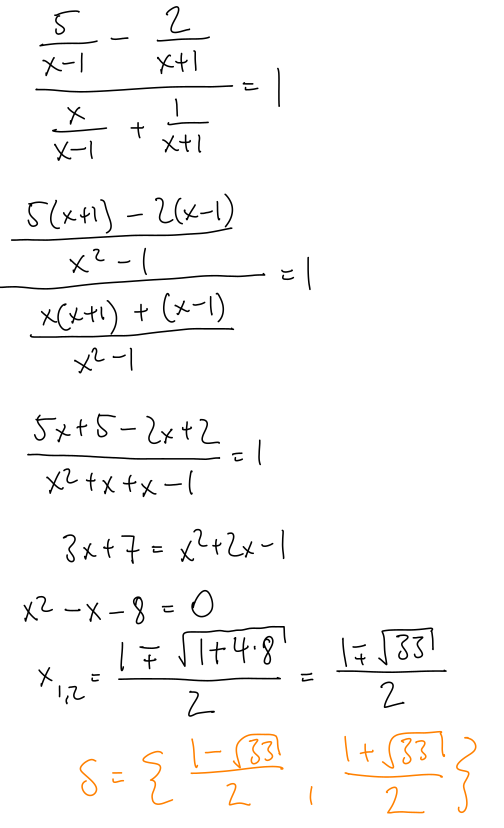 5/(x-1) - 2/(x+1) / x/(x-1) + 1/(x+1) = 1
5(x+1) - 2(x-1) / x² - 1 / x(x+1) + (x-1) / x² - 1 = 1
5x+5-2x+2 / x²+x+x-1 = 1
3x+7 = x²+2x-1
x² - x - 8 = 0
x₁,₂ = 1 ∓ √(1+4·8) / 2 = 1 ∓ √33 / 2
S = { 1-√33 / 2 , 1+√33 / 2 }